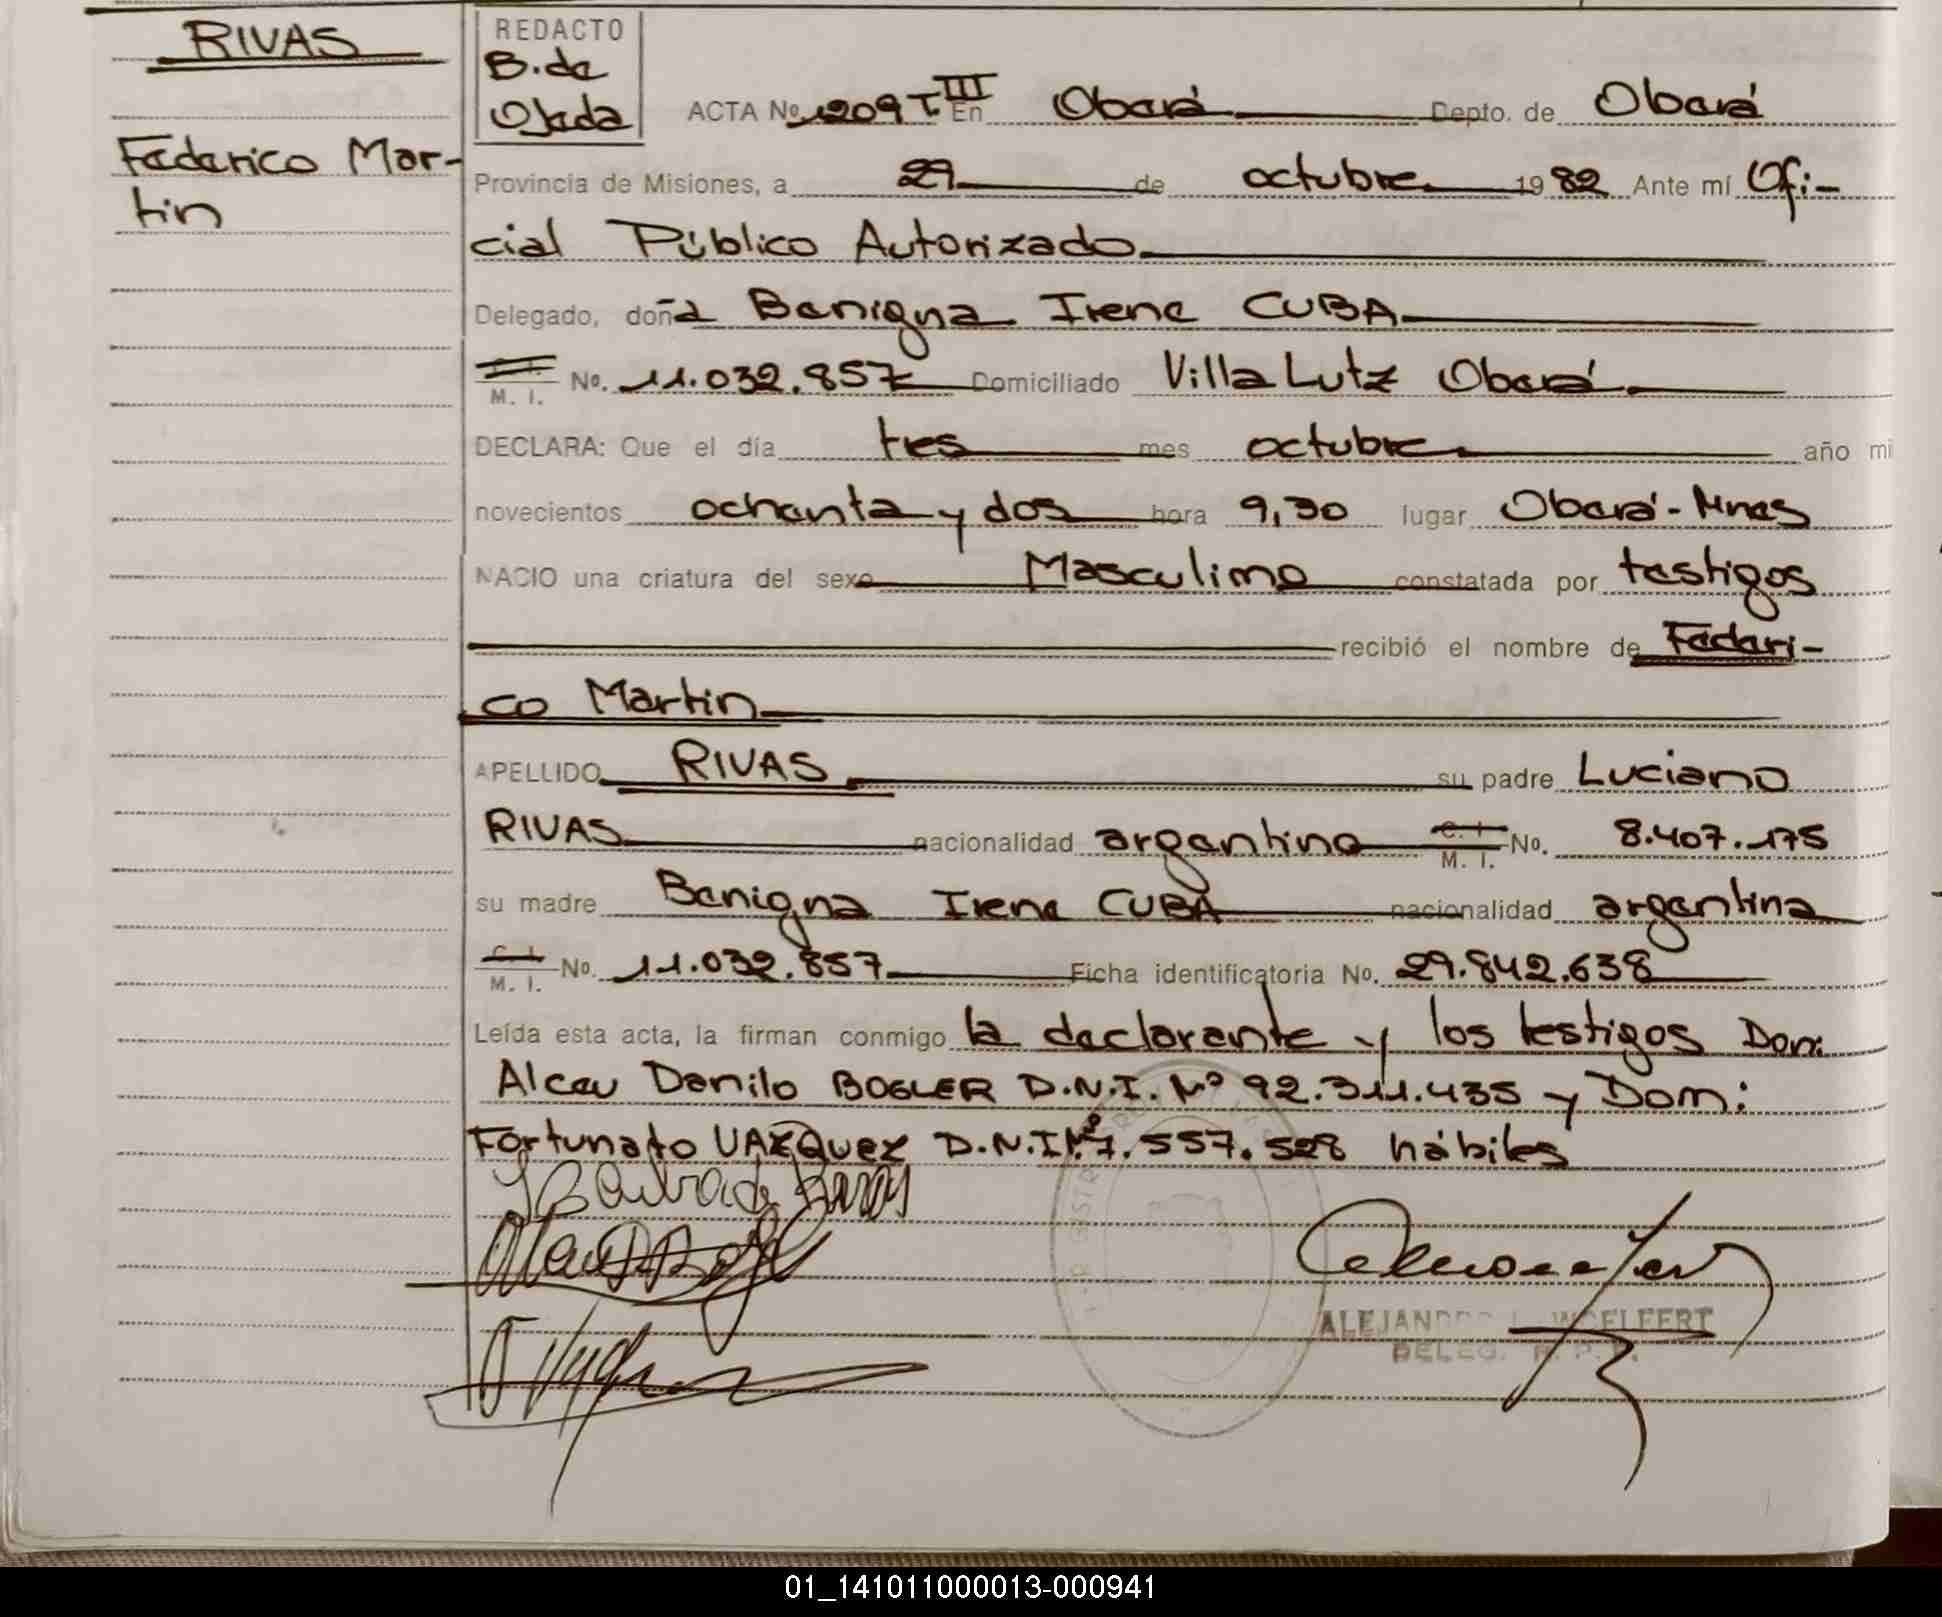 RIVAS
Federico Mar-
tin
REDACTO
B. de
Ojeda
ACTA No 1209 T III En Oberá Depto. de Oberá
Provincia de Misiones, a 29 de octubre 1982 Ante mí Ofi-
cial Público Autorizado
Delegado, doña Benigna Irene CUBA
M. I. No. 11.032.857 Domiciliado Villa Lutz Oberá
DECLARA: Que el día tres mes octubre año mi
novecientos ochenta y dos hora 9,30 lugar Oberá - Mnes
NACIO una criatura del sexo Masculino constatada por testigos
recibió el nombre de Federi-
co Martin
APELLIDO RIVAS su padre Luciano
RIVAS nacionalidad argentino C. I. M. I. No. 8.407.175
su madre Benigna Irene CUBA nacionalidad argentina
C. I. M. I. No. 11.032.857 Ficha identificatoria No. 29.842.638
Leída esta acta, la firman conmigo la declarante y los testigos Don:
Alceu Danilo BOGLER D.N.I. Nº 92.311.435 y Dom:
Fortunato VAZQuez D.N.I Nº 7.557.528 hábiles
ALEJANDRO L. WOELFERT
DELEG. R. P. P.
01_141011000013-000941